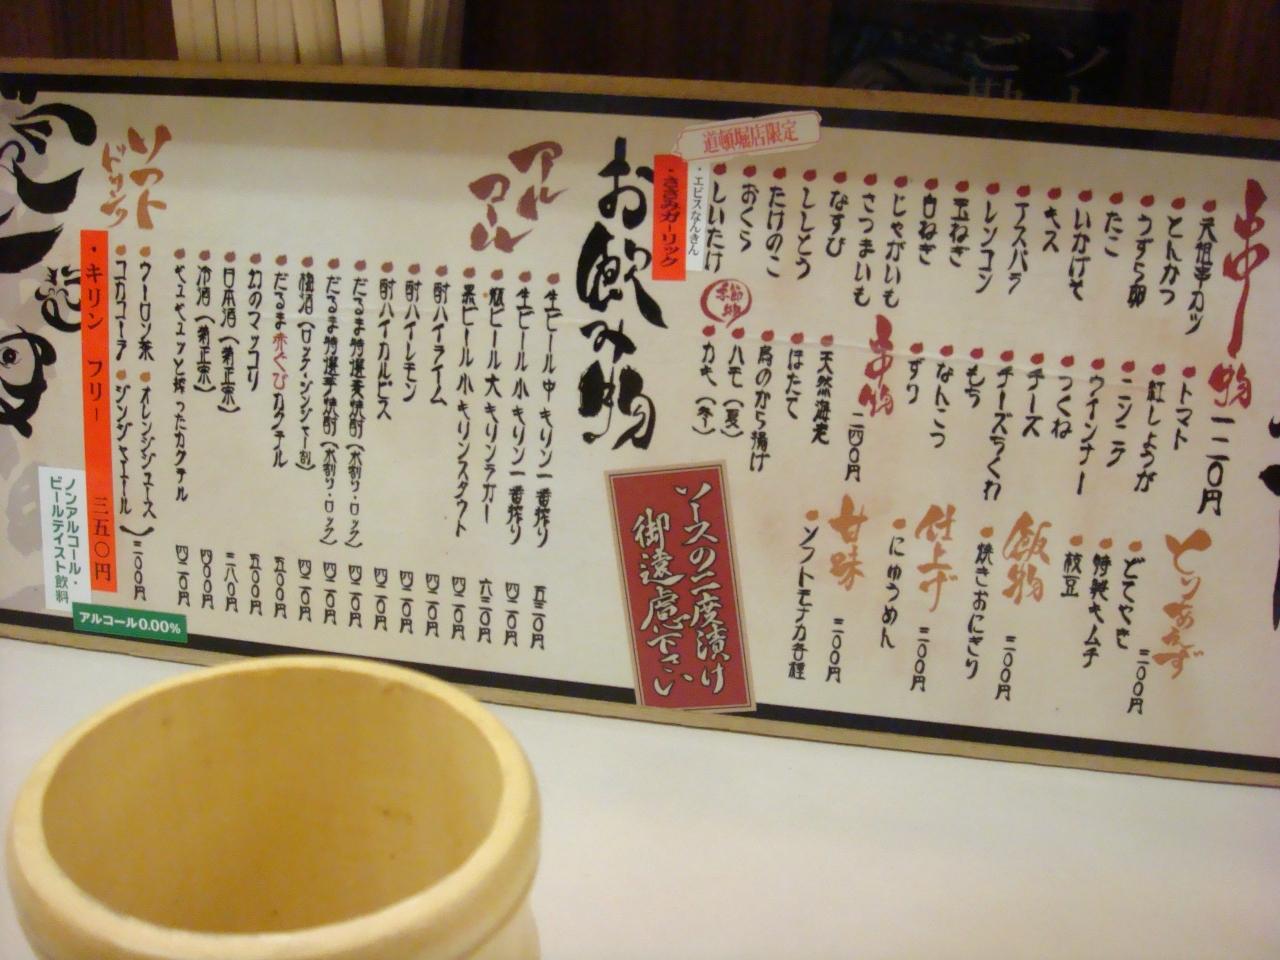 串物 一二〇円
元祖串カツ
とんかつ
うずら卵
たこ
いかげそ
キス
アスパラ
レンコン
玉ねぎ
白ねぎ
じゃがいも
さつまいも
なすび
ししとう
たけのこ
おくら
しいたけ
道頓堀店限定
・エビスなんきん
・ささみガーリック
トマト
紅しょうが
ニンニク
ウインナー
つくね
チーズ
チーズちくわ
もち
なんこつ
ずり
串物 二四〇円
天然海老
ほたて
鳥のから揚げ
季節物
ハモ（夏）
カキ（冬）
とりあえず
どてやき 三〇〇円
特製キムチ
枝豆
飯物 三〇〇円
焼きおにぎり
仕上げ 三〇〇円
にゅうめん
甘味 三〇〇円
ソフトモナカ各種
ソースの二度漬け
御遠慮下さい
お飲み物
アルコール
生ビール 中 キリン一番搾り 五三〇円
生ビール 小 キリン一番搾り 四二〇円
瓶ビール 大 キリンラガー 六三〇円
黒ビール 小 キリンスタウト 四二〇円
酎ハイライム 四二〇円
酎ハイレモン 四二〇円
酎ハイカルピス 四二〇円
だるま特選麦焼酎（水割り・ロック） 四二〇円
だるま特選芋焼酎（水割り・ロック） 四二〇円
梅酒（ロック・ジンジャー割） 四二〇円
だるま赤ぐびカクテル 五〇〇円
幻のマッコリ 五〇〇円
日本酒（菊正宗） 三八〇円
冷酒（菊正宗） 四〇〇円
ギュギュッと搾ったカクテル 四二〇円
ソフトドリンク
ウーロン茶 オレンジジュース
コカコーラ ジンジャーエール 二〇〇円
・キリン フリー 三五〇円
ノンアルコール・
ビールテイスト飲料
アルコール0.00%